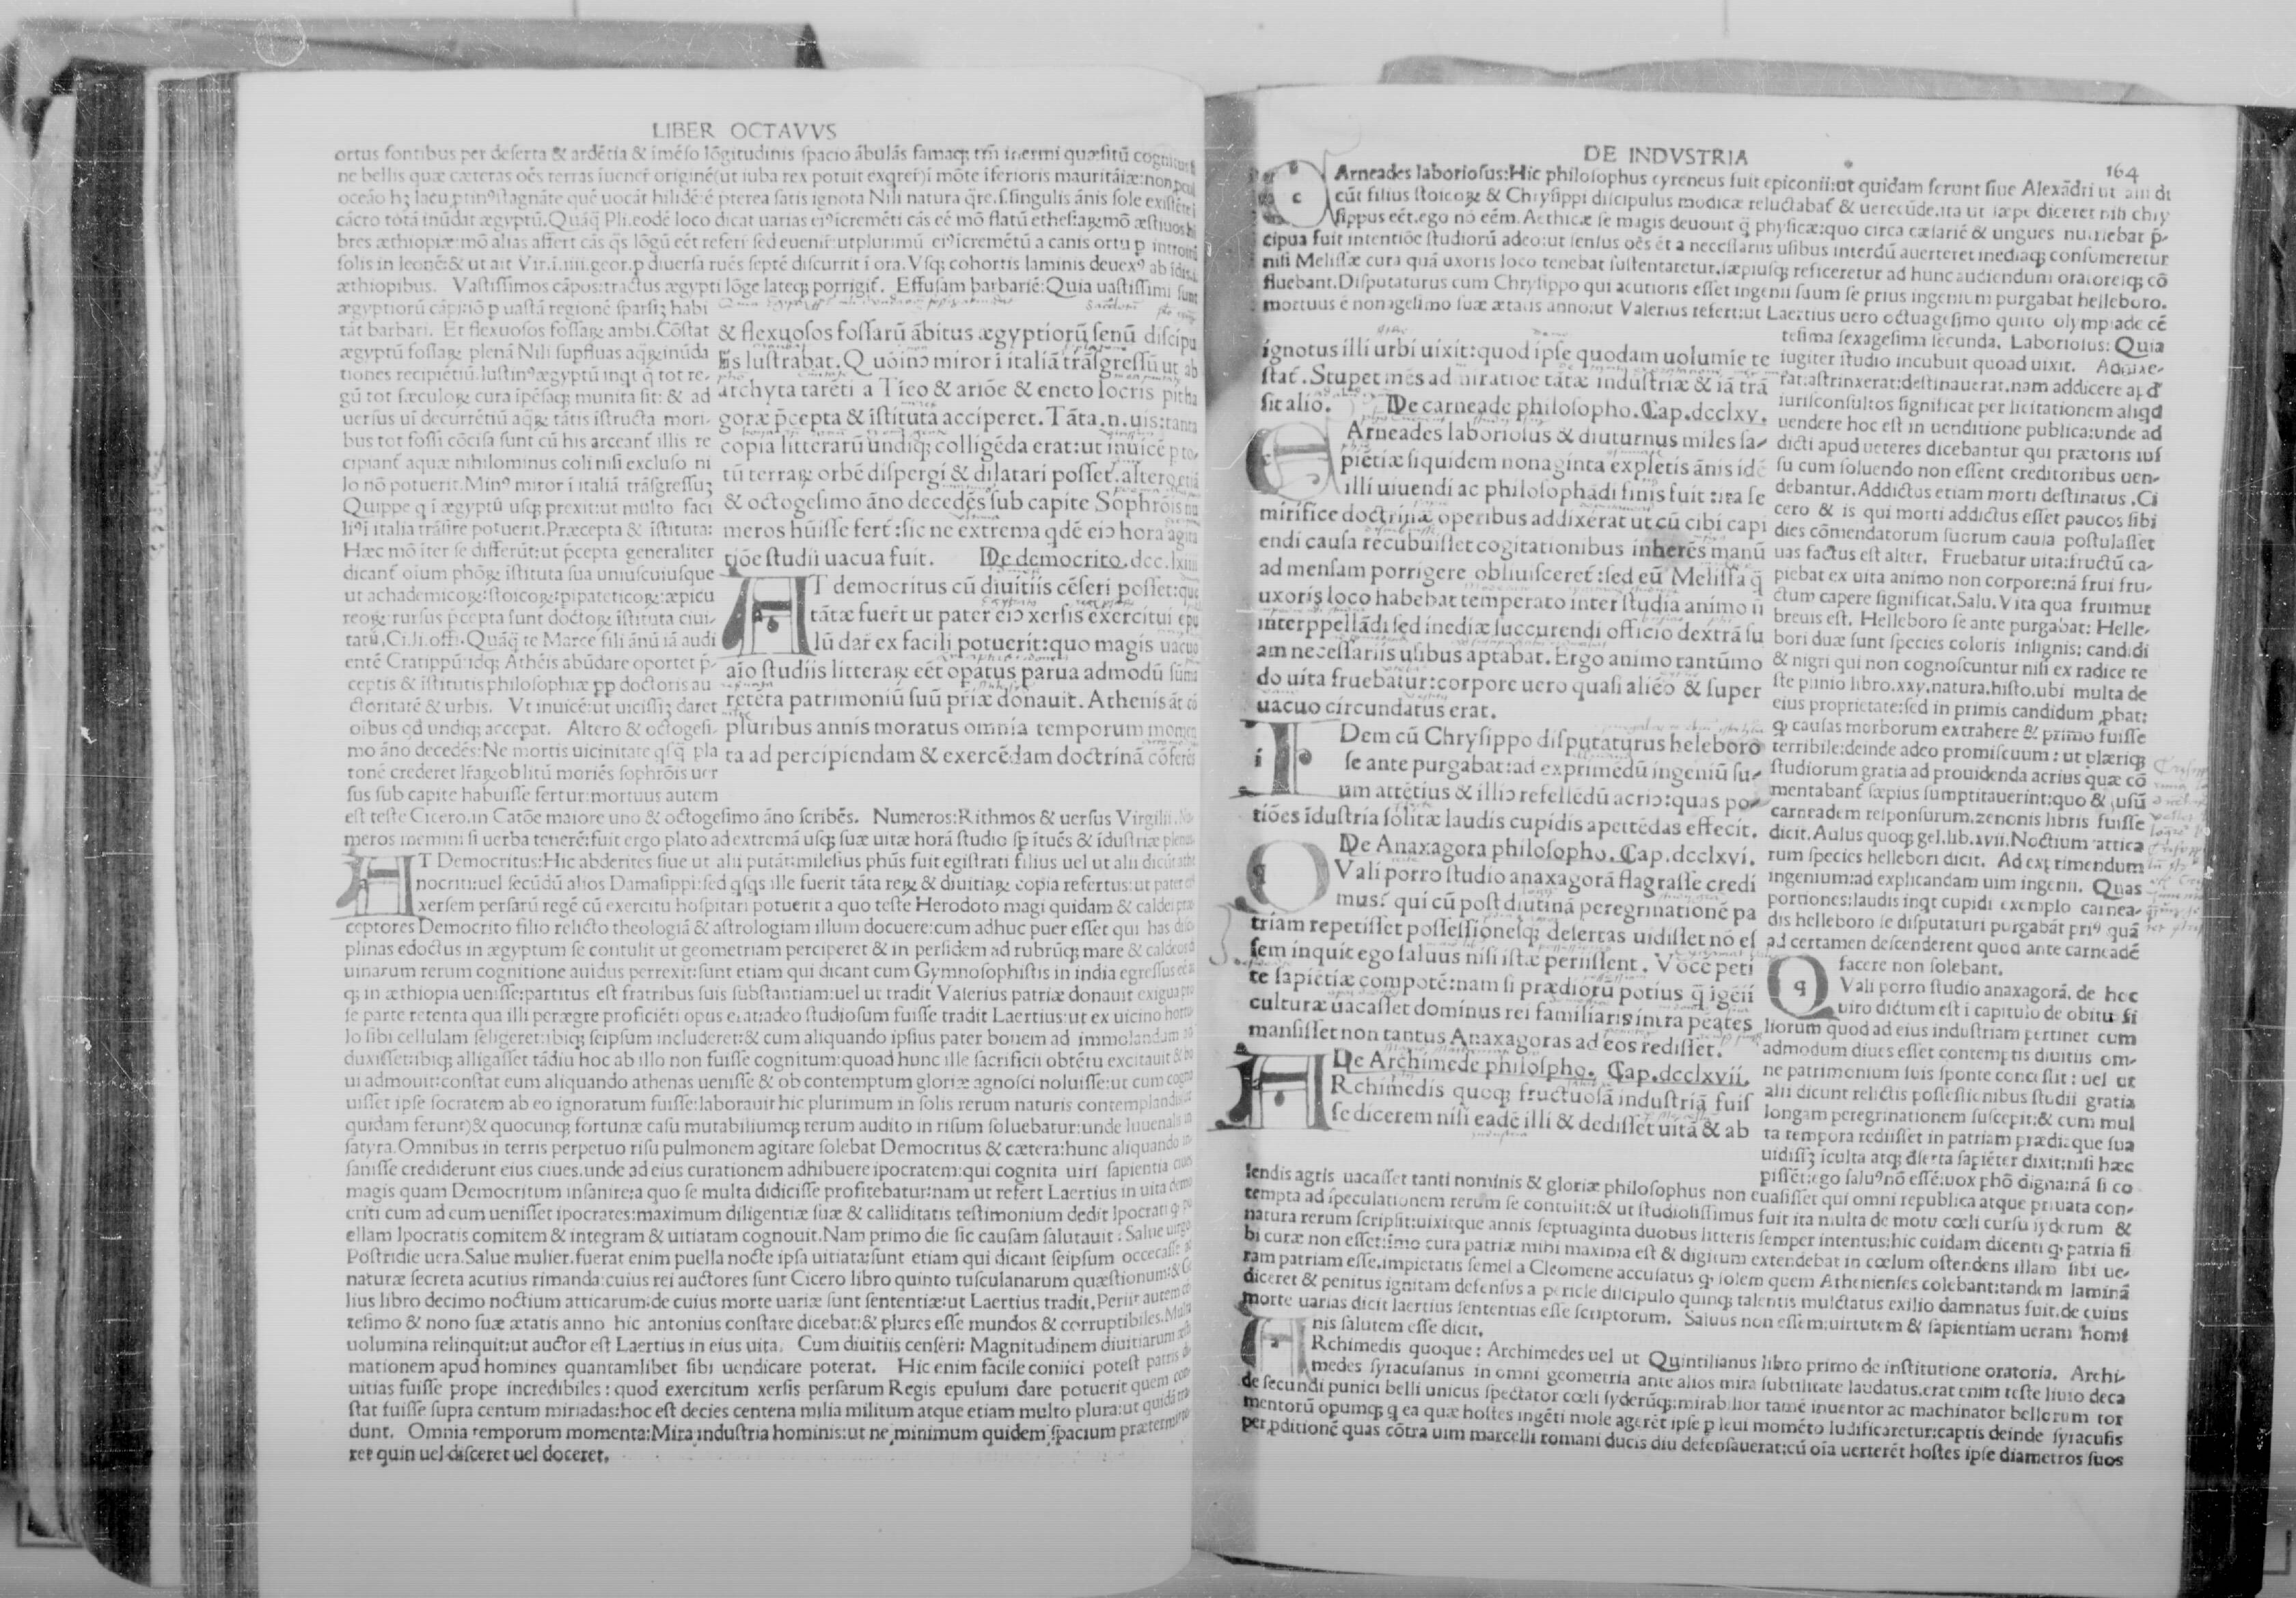 LIBER OCTAVVS
ortus fontibus per deserta & ardētia & īmēso lōgitudinis spacio ābulās famaq; tm̄ inermi quæsitū
ne bellis quæ cæteras oēs terras iuenet originē(ut iuba rex potuit exqrer̄)ī mōte īferioris mauritāiæ:non
solis in leonē:& ut ait Vir.ī.iiii.geor.p diuersa ruēs septē discurrit ī ora.Vsq; cohortis laminis deuexꝰ ab
æthiopibus. Vastissimos cāpos:tractus ægypti lōge lateq; porrigit̄. Effusam barbariē:Quia uastissimi sunt
ægyptiorū cāpi:iō p uastā regionē sparsiʒ habi
tāt barbari. Et flexuosos fossaꝝ ambi.Cōstat
ægyptū fossaꝝ plenā Nili supfluas aq̄ꝝ inūda
tiones recipiētiū.Iustinꝰ ægyptū inqt q̄ tot re-
gū tot sæculoꝝ cura ipēsaq; munita sit: & ad
uersus uī decurrētiū aq̄ꝝ tātis īstructa mori-
bus tot fossi cōcisa sunt cū his arceant̄ illis re
cipiant̄ aquæ nihilominus coli nisi excluso ni
lo nō potuerit.Minꝰ miror ī italiā trāsgressuʒ
Quippe q ī ægyptū usq; prexit:ut multo faci
liꝰ ī italia trāsire potuerit.Præcepta & īstituta:
Hæc mō īter se differūt:ut p̄cepta generaliter
dicant̄ oium phōꝝ īstituta sua uniuscuiusque
ut achademicoꝝ:stoicoꝝ:pipateticoꝝ:æpicu
reoꝝ:rursus p̄cepta sunt doctoꝝ īstituta ciui-
tatū.Ci.li.offi.Quāq̄ te Marce fili ānū iā audi
entē Cratippū:idq; Athēis abūdare oportet p̄-
ceptis & īstitutis philosophiæ pp doctoris au
ctoritatē & urbis. Vt inuicē:ut uicissiʒ daret
oibus qd undiq; accepat. Altero & octogesi-
mo āno decedēs:Ne mortis uicinitate qsq̄ pla
tonē crederet lr̄aꝝ oblitū moriēs sophrōis uer
sus sub capite habuisse fertur:mortuus autem
& flexuosos fossarū ābitus ægyptiorū senū discipu
lis lustrabat. Quoīnↄ miror ī italiā trāsgressū ut ab
archyta tarēti a Tieo & ariōe & eneto locris pitha
goræ p̄cepta & īstituta acciperet. Tāta.n.uis:tanta
copia litterarū undiq; colligēda erat:ut inuicē p to-
tū terraꝝ orbē dispergi & dilatari posset.altero etiā
& octogesimo āno decedēs sub capite Sophrōis nu
meros hūisse fert̄:sic ne extrema qdē eiↄ hora agita
tiōe studii uacua fuit. De democrito.dcc.lxiiii
AT democritus cū diuitiis cēseri posset:quę
tātæ fuer̄t ut pater eiↄ xersis exercitui epu
lū dar̄ ex facili potuerit:quo magis uacuo
aīo studiis litteraꝝ eēt opatus parua admodū sūma
retēta patrimoniū suū p̄riæ donauit. Athenis āt cō
pluribus annis moratus omnia temporum momen
ta ad percipiendam & exercēdam doctrinā cōferēs
est teste Cicero.in Catōe maiore uno & octogesimo āno scribēs. Numeros:Rithmos & uersus Virgilii.
meros memini si uerba tenerē:fuit ergo plato ad extremā usq; suæ uitæ horā studio sp ītuēs & īdustriæ plenus
AT Democritus:Hic abderites siue ut alii putāt:milesius phūs fuit egistrati filius uel ut alii dicūt
nocriti:uel secūdū alios Damasippi:sed qsqs ille fuerit tāta reꝝ & diuitiaꝝ copia refertus:ut pater
xersem persarū regē cū exercitu hospitari potuerit a quo teste Herodoto magi quidam & caldei
ceptores Democrito filio relicto theologiā & astrologiam illum docuere:cum adhuc puer esset qui has
plinas edoctus in ægyptum se contulit ut geometriam perciperet & in persidem ad rubrūq; mare &
uinarum rerum cognitione auidus perrexit:sunt etiam qui dicant cum Gymnosophistis in india egressus
q; in æthiopia uenisse:partitus est fratribus suis substantiam:uel ut tradit Valerius patriæ donauit exigua
se parte retenta qua illi peræegre proficiēti opus erat:adeo studiosum fuisse tradit Laertius:ut ex uicino
lo sibi cellulam seligeret:ibiq; seipsum includeret:& cum aliquando ipsius pater bouem ad immolandum
duxisset:ibiq; alligasset tādiu hoc ab illo non fuisse cognitum:quoad hunc ille sacrificii obtētu excitauit
ui admouit:constat eum aliquando athenas uenisse & ob contemptum gloriæ agnosci noluisse:ut cum
uisset ipse socratem ab eo ignoratum fuisse:laborauit hic plurimum in solis rerum naturis contemplandis
quidam ferunt)& quocunq; fortunæ casu mutabiliumq; rerum audito in risum soluebatur:unde Iuuenalis
satyra.Omnibus in terris perpetuo risu pulmonem agitare solebat Democritus & cætera:hunc aliquando
sanisse crediderunt eius ciues.unde ad eius curationem adhibuere ipocratem:qui cognita uiri sapientia
magis quam Democritum insanire:a quo se multa didicisse profitebatur:nam ut refert Laertius in uita
criti cum ad eum uenisset ipocrates:maximum diligentiæ suæ & calliditatis testimonium dedit Ipocrati
ellam Ipocratis comitem & integram & uitiatam cognouit.Nam primo die sic causam salutauit : Salue uirgo
Postridie uera.Salue mulier.fuerat enim puella nocte ipsa uitiata:sunt etiam qui dicant seipsum occecasse
naturæ secreta acutius rimanda:cuius rei auctores sunt Cicero libro quinto tusculanarum quæstionum:&
lius libro decimo noctium atticarum:de cuius morte uariæ sunt sententiæ:ut Laertius tradit.Periit autem
tesimo & nono suæ ætatis anno hic antonius constare dicebat:& plures esse mundos & corruptibiles.
uolumina relinquit:ut auctor est Laertius in eius uita. Cum diuitiis censeri: Magnitudinem diuitiarum
mationem apud homines quantamlibet sibi uendicare poterat. Hic enim facile coniici potest patris
uitias fuisse prope incredibiles : quod exercitum xersis persarum Regis epulum dare potuerit quem
stat fuisse supra centum miriadas:hoc est decies centena milia militum atque etiam multo plura:ut
dunt. Omnia temporum momenta:Mira industria hominis:ut ne minimum quidem spacium
ret quin uel disceret uel doceret.
DE INDVSTRIA
164
CArneades laboriosus:Hic philosophus cyreneus fuit epiconii:ut quidam ferunt siue Alexādri ut
cūt filius stoicoꝝ & Chrysippi discipulus modicæ reluctabat̄ & uerecūde.ita ut sæpe diceret nisi chry
sippus eēt.ego nō eēm.Aethicæ se magis deuouit q̄ physicæ:quo circa cæsariē & ungues nutriebat p̄-
cipua fuit intentiōe studiorū adeo:ut sensus oēs ēt a necessariis usibus interdū auerteret inediaq; consumeretur
nisi Melissæ cura quā uxoris loco tenebat sustentaretur.sæpiusq; reficeretur ad hunc audiendum oratoresq; cō
fluebant.Disputaturus cum Chrysippo qui acutioris esset ingenii suum se prius ingenium purgabat helleboro.
mortuus ē nonagesimo suæ ætatis anno:ut Valerius refert:ut Laertius uero octuagesimo quīto olympiade cē
ignotus illi urbi uixit:quod ipse quodam uolumīe te
stat̄. Stupet mēs ad miratioe tātæ industriæ & iā trā
sit alio. De carneade philosopho. Cap.dcclxv.
CArneades laboriosus & diuturnus miles sa-
piētiæ siquidem nonaginta expletis ānis idē
illi uiuendi ac philosophādi finis fuit :ita se
mirifice doctrinæ operibus addixerat ut cū cibi capi
endi causa recubuisset cogitationibus inherēs manū
ad mensam porrigere obliuisceret̄ :sed eū Melissa q̄
uxoris loco habebat temperato inter studia animo ii
interppellādi sed inediæ succurendi officio dextrā su
am necessariis usibus aptabat. Ergo animo tantūmo
do uita fruebatur:corpore uero quasi aliēo & super
uacuo circundatus erat.
IDem cū Chrysippo disputaturus heleboro
se ante purgabat:ad exprimēdū ingeniū su-
um attētius & illiↄ refellēdū acriↄ:quas po-
tiōes īdustria solitæ laudis cupidis apettēdas effecit.
De Anaxagora philosopho. Cap.dcclxvi.
QVali porro studio anaxagorā flagrasse credi
mus? qui cū post diutinā peregrinationē pa
triam repetisset possessionesq; desertas uidisset nō es
sem inquit ego saluus nisi istæ periissent. Voce peti
te sapiētiæ compotē:nam si prædiorū potius q̄ īgēii
culturæ uacasset dominus rei familiaris intra pēates
mansisset non tantus Anaxagoras ad eos redisset.
De Archimede philospho. Cap.dcclxvii.
ARchimedis quoq; fructuosā industriā fuis
se dicerem nisi eadē illi & dedisset uitā & ab
tesima sexagesima secunda. Laboriosus: Quia
iugiter studio incubuit quoad uixit. Addixe-
rat:astrinxerat:destinauerat.nam addicere apd
iurisconsultos significat per licitationem aliqd
uendere hoc est in uenditione publica:unde ad
dicti apud ueteres dicebantur qui prætoris ius
su cum soluendo non essent creditoribus uen-
debantur.Addictus etiam morti destinatus .Ci
cero & is qui morti addictus esset paucos sibi
dies cōmendatorum suorum causa postulasset
uas factus est alter. Fruebatur uita:fructū ca-
piebat ex uita animo non corpore:nā frui fru-
ctum capere significat.Salu.Vita qua fruimur
breuis est. Helleboro se ante purgabat: Helle-
bori duæ sunt species coloris insignis: candidi
& nigri qui non cognoscuntur nisi ex radice te
ste plinio libro.xxy.natura.histo.ubi multa de
eius proprietate:sed in primis candidum pbat:
q, causas morborum extrahere & primo fuisse
terribile:deinde adeo promiscuum : ut plæriq;
studiorum gratia ad prouidenda acrius quæ cō
mentabant̄ sæpius sumptitauerint:quo & usū
carneadem responsurum.zenonis libris fuisse
dicit.Aulus quoq; gel.lib.xvii.Noctium attica
rum species hellebori dicit. Ad exprimendum
ingenium:ad explicandam uim ingenii. Quas
portiones:laudis inqt cupidi exemplo carnea-
dis helleboro se disputaturi purgabāt priꝰ quā
ad certamen descenderent quod ante carneadē
facere non solebant.
QVali porro studio anaxagorā. de hoc
uiro dictum est ī capitulo de obitu fi
liorum quod ad eius industriam pertinet cum
admodum diues esset contemptis diuitiis om-
ne patrimonium suis sponte concessit : uel ut
alii dicunt relictis possessionibus studii gratia
longam peregrinationem suscepit:& cum mul
ta tempora rediisset in patriam prædiaque sua
uidissʒ īculta atq; dserta sapiēter dixit:nisi hæc
pissēt:ego saluꝰ nō essē:uox phō digna:nā si co
lendis agris uacasset tanti nominis & gloriæ philosophus non euasisset qui omni republica atque priuata con-
tempta ad speculationem rerum se contulit:& ut studiosissimus fuit ita multa de motu cœli cursu syderum &
natura rerum scripsit:uixitque annis septuaginta duobus litteris semper intentus:hic cuidam dicenti q, patria si
bi curæ non esset:īmo cura patriæ mihi maxima est & digitum extendebat in cœlum ostendens illam sibi ue-
ram patriam esse.impietatis semel a Cleomene accusatus q, solem quem Athenienses colebant:tandem laminā
diceret & penitus ignitam defensus a pericle discipulo quinq; talentis mulctatus exilio damnatus fuit.de cuius
morte uarias dicit laertius sententias esse scriptorum. Saluus non essem:uirtutem & sapientiam ueram homi
nis salutem esse dicit.
ARchimedis quoque : Archimedes uel ut Quintilianus libro primo de institutione oratoria. Archi-
medes syracusanus in omni geometria ante alios mira subtilitate laudatus.erat enim teste liuio deca
de secundi punici belli unicus spectator cœli syderūq;:mirabilior tamē inuentor ac machinator bellorum tor
mentorū opumq; q ea quæ hostes ingēti mole agerēt ipse p leui momēto ludificaretur:captis deinde syracusis
per pditionē quas cōtra uim marcelli romani ducis diu defensauerat:cū oīa uerterēt hostes ipse diametros suos